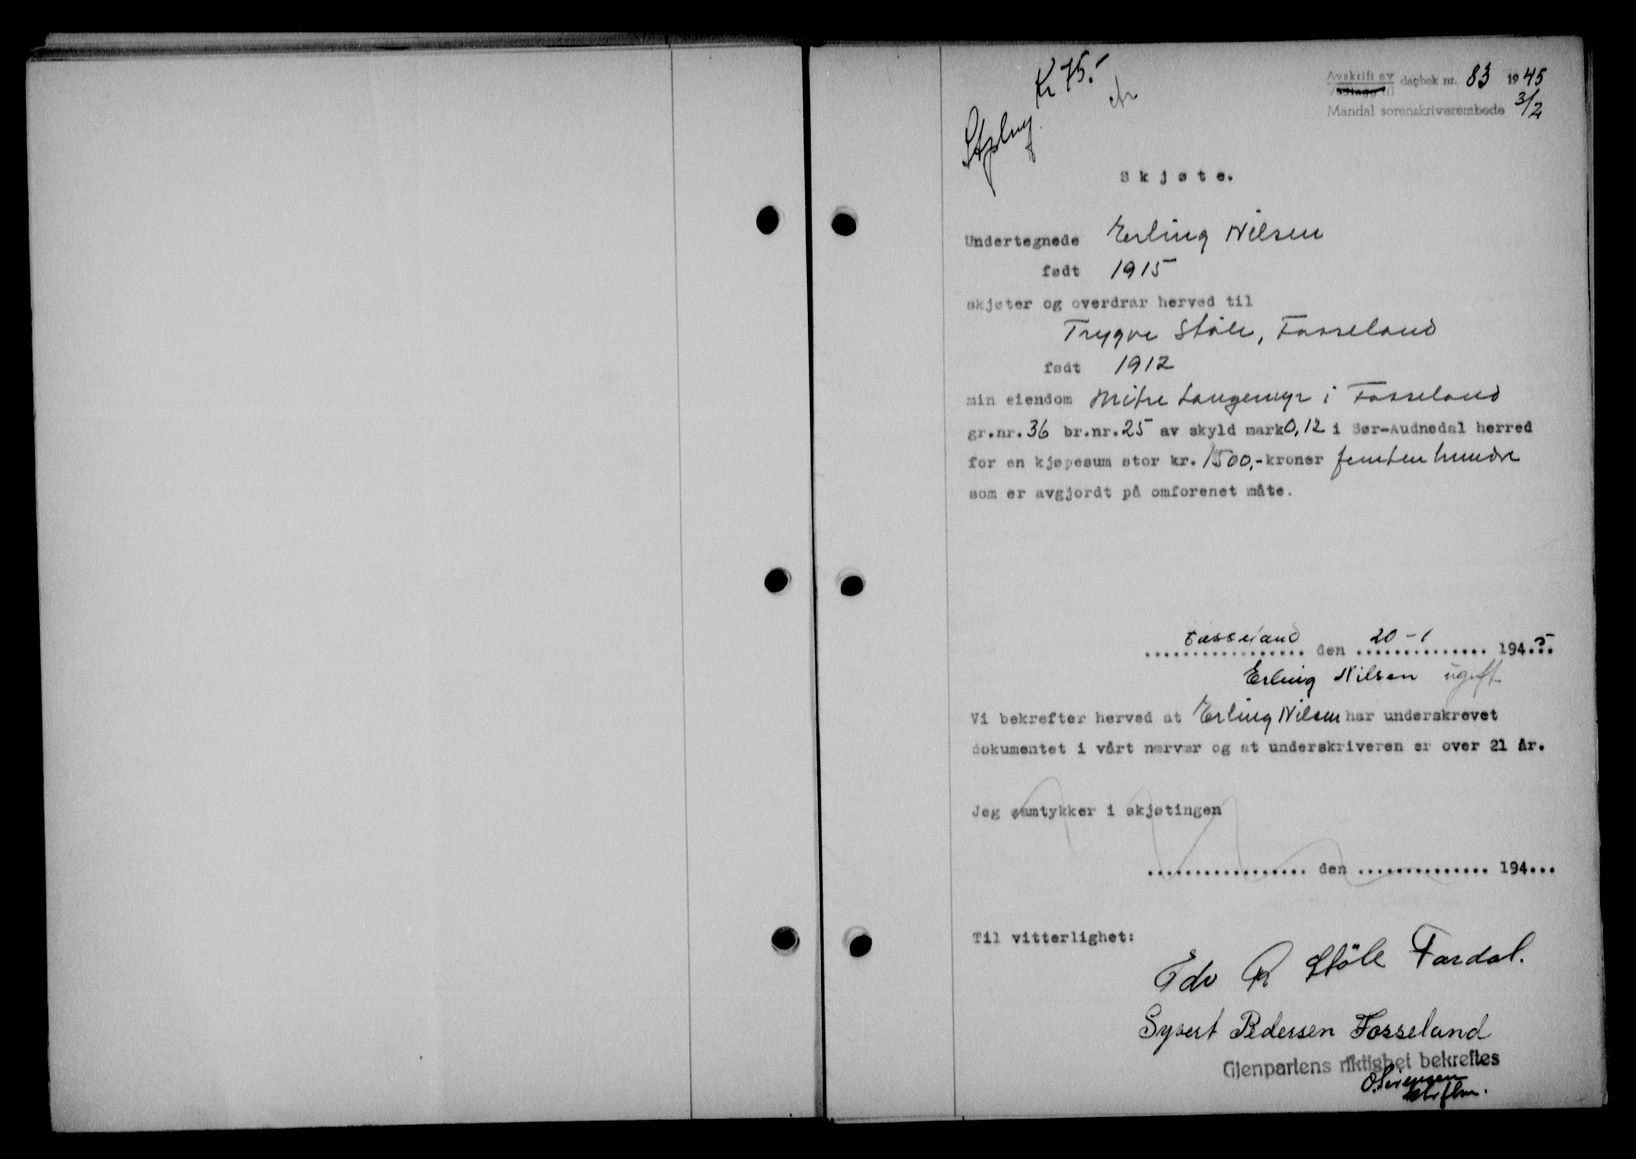 Kr 75.-
Avskrift av dagbok nr. 83 1945
3/2
Mandal sorenskriverembede
Skjøte.
Undertegnede Erling Nilsen
født 1915
skjøter og overdrar herved til
Trygve Støle, Fasseland
født 1912
min eiendom Langemyr i Fasseland
gr.nr. 36 br.nr. 25 av skyld mark 0,12 i Sør-Audnedal herred
for en kjøpesum stor kr. 1500,- kroner femten hundre
som er avgjordt på omforenet måte.
Fasseland den 20-1 1945.
Erling Nilsen ugift
Vi bekrefter herved at Erling Nilsen har underskrevet
dokumentet i vårt nærvær og at underskriveren er over 21 år.
Jeg samtykker i skjøtingen
................. den .............. 194...
Til vitterlighet:
Edv R Støle Fardal.
Syvert Pedersen Fosseland
Gjenpartens riktighet bekreftes
O. Sørensen